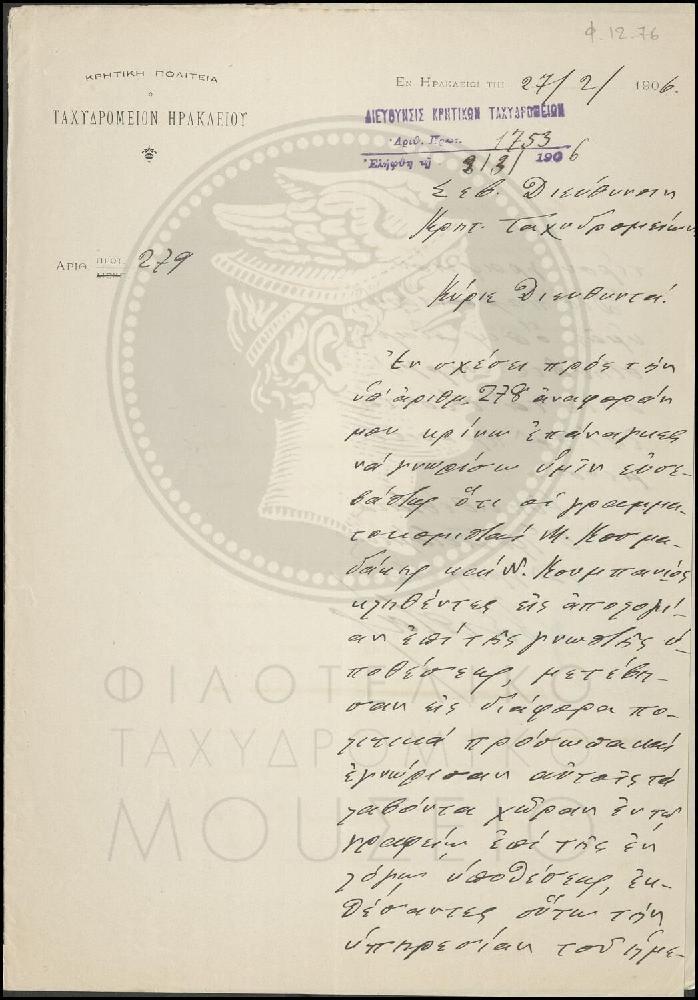 Φ.12.76
ΚΡΗΤΙΚΗ ΠΟΛΙΤΕΙΑ
ΤΑΧΥΔΡΟΜΕΙΟΝ ΗΡΑΚΛΕΙΟΥ
ΕΝ ΗΡΑΚΛΕΙΩΙ ΤΗΙ 27/2/ 1906.
ΔΙΕΥΘΥΝΣΙΣ ΚΡΗΤΙΚΩΝ ΤΑΧΥΔΡΟΜΕΙΩΝ
Ἀριθ. Πρωτ. 1753
Ἐλήφθη τῇ 3/3/ 1906
Σεβ. Διεύθυνσιν
Κρητ. Ταχυδρομείων
ΑΡΙΘ ΠΡΩΤ. 279
Κύριε Διευθυντά.
Ἐν σχέσει πρὸς τὴν
ὑπ' ἀριθμ. 278 ἀναφοράν
μου κρίνω ἐπάναγκες
νὰ γνωρίσω ὑμῖν εὐσε-
βάστως ὅτι οἱ γραμμα-
τοκομισταὶ Μ. Κοσμα-
δάκης καὶ Ν. Κουμπανιός
κληθέντες εἰς ἀπολογί-
αν ἐπὶ τῆς γνωστῆς ὑ-
ποθέσεως, μετέβη-
σαν εἰς διάφορα πο-
λιτικὰ πρόσωπα καὶ
ἐγνώρισαν αὐτοῖς τὰ
λαβόντα χώραν ἐν τῷ
γραφείῳ ἐπὶ τῆς ἐν
λόγῳ ὑποθέσεως, ἐκ-
θέσαντες οὕτω τὴν
ὑπηρεσίαν τοῦ ἡμε-
ΦΙΛΟΤΕΛΙΚΟ
ΤΑΧΥΔΡΟΜΙΚΟ
ΜΟΥΣΕΙΟ